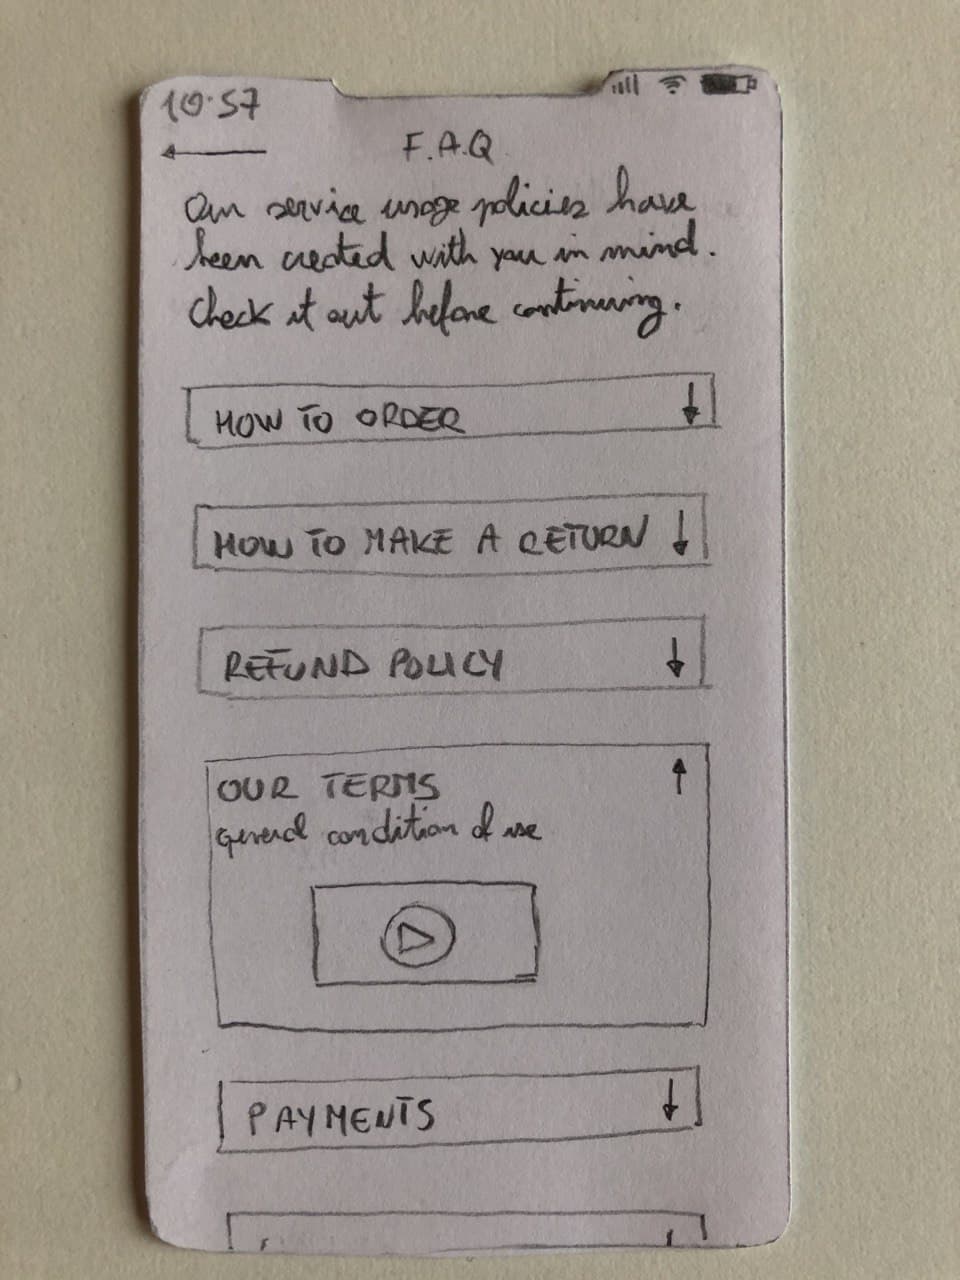 10:57
F.A.Q
Our service usage policies have
been created with you in mind.
Check it out before continuing.
HOW TO ORDER
HOW TO MAKE A RETURN
REFUND POLICY
OUR TERMS
general condition of use
PAYMENTS